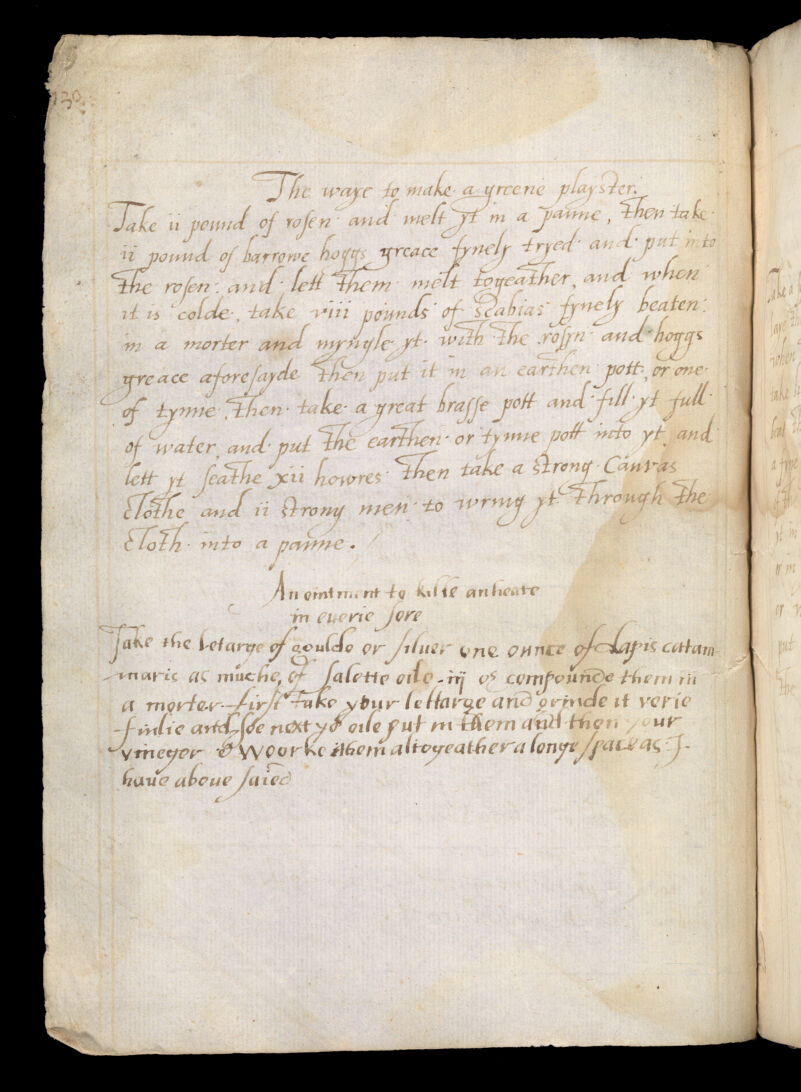 130.
The waye to make a greene playster.
Take ii pound of rosen and melt yt in a panne, then take
ii pound of barrowe hoggs greace fynely tryed and put into
the rosen. and lett them melt togeather, and when
it is colde, take viii pounds of scabias fynely beaten
in a morter and myngle yt with the rosyn and hoggs
greace aforesayde then put it in an earthen pott, or one
of tynne, then take a great brasse pott and fill yt full
of water, and put the earthen or tynne pott into yt, and
lett yt seathe xii howres then take a strong Canvas
clothe and ii strong men to wring yt through the
cloth into a panne.
An ointment to kille an heate
in everie sore
Take the letarge of goulde or silver one ounce of Lapis catam
maris as muche, of salette oile iij os compounde them in
a morter first take your lettarge and grinde it verie
finlie and soe next yo oile put in them and then your
vineger & woorke them altogeather a longe space as I
have above saied